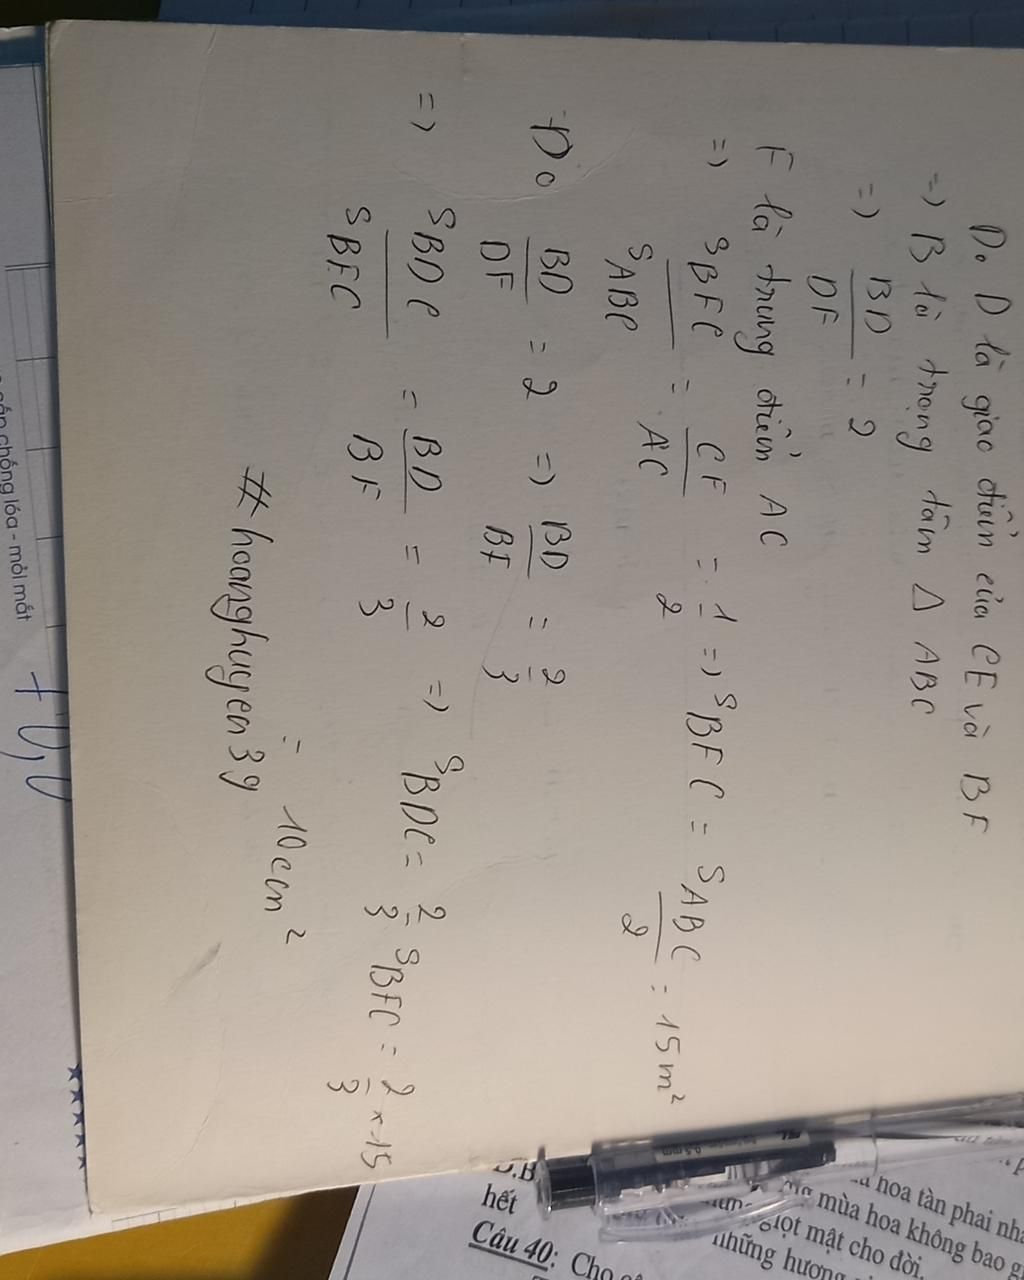 Do D là giao điểm của CE và BF
=> B là trọng tâm Δ ABC
=> BD/DF = 2
F là trung điểm AC
=> SBFC/SABC = CF/AC = 1/2 => SBFC = SABC/2 = 15m²
Do BD/DF = 2 => BD/BF = 2/3
=> SBDC/SBFC = BD/BF = 2/3 => SBDC = 2/3 SBFC = 2/3 x 15
= 10cm²
# hoanghuyen39
chống lóa - mỏi mắt
hoa tàn phai
mùa hoa không bao
giọt mật cho đời
những hương
hết
Câu 40: Cho
0.5 mm